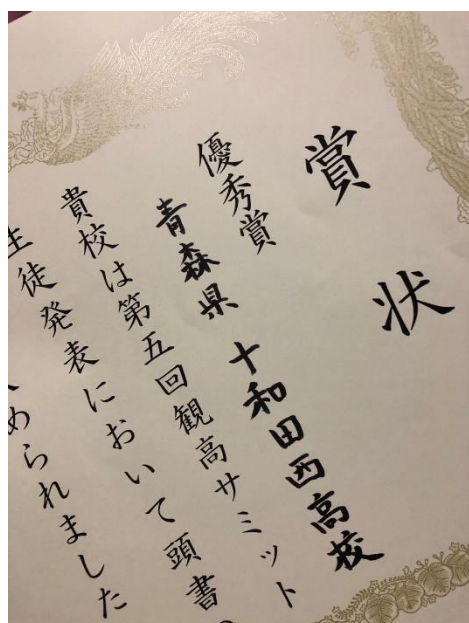 賞状
優秀賞
青森県 十和田西高校
貴校は第五回観高サミット
生徒発表において頭書の
められました